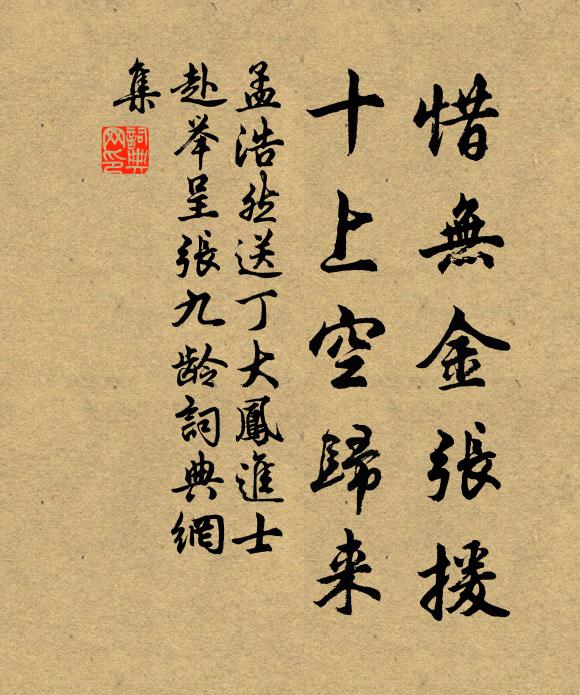 惜無金張援
十上空歸来
孟浩然送丁大鳳進士
赴举呈張九齡詞典網
集
詞典
网印